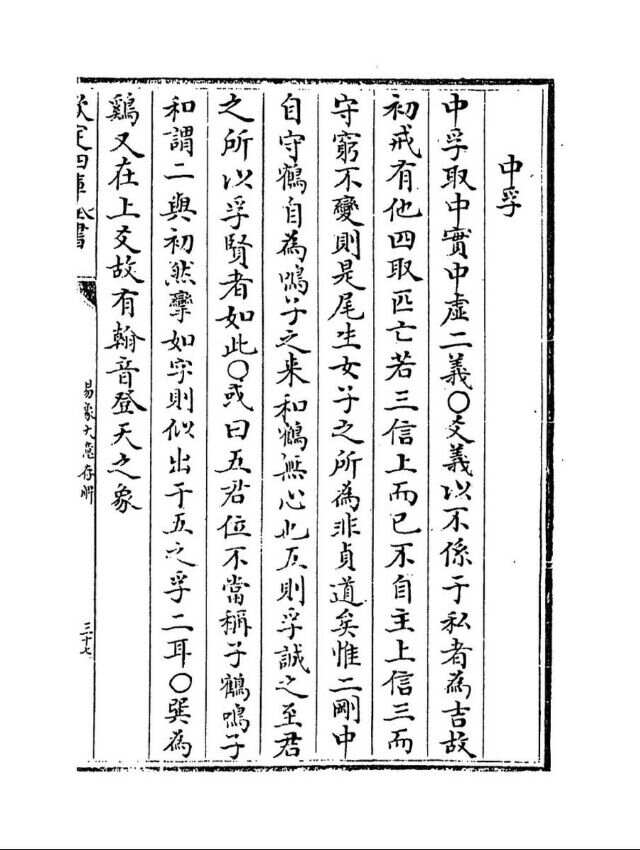 中孚
中孚取中實中虛二義○爻義以不係于私者為吉故
初戒有他四取匹亡若三信上而已不自主上信三而
守窮不變則是尾生女子之所為非貞道矣惟二剛中
自守鶴自為鳴子之来和鶴無心也五則孚誠之至君
之所以孚賢者如此○或曰五君位不當稱子鶴鳴子
和謂二與初然攣如字則似出于五之孚二耳○巽為
鷄又在上爻故有翰音登天之象
欽定四庫全書
易象大意存解
三十七